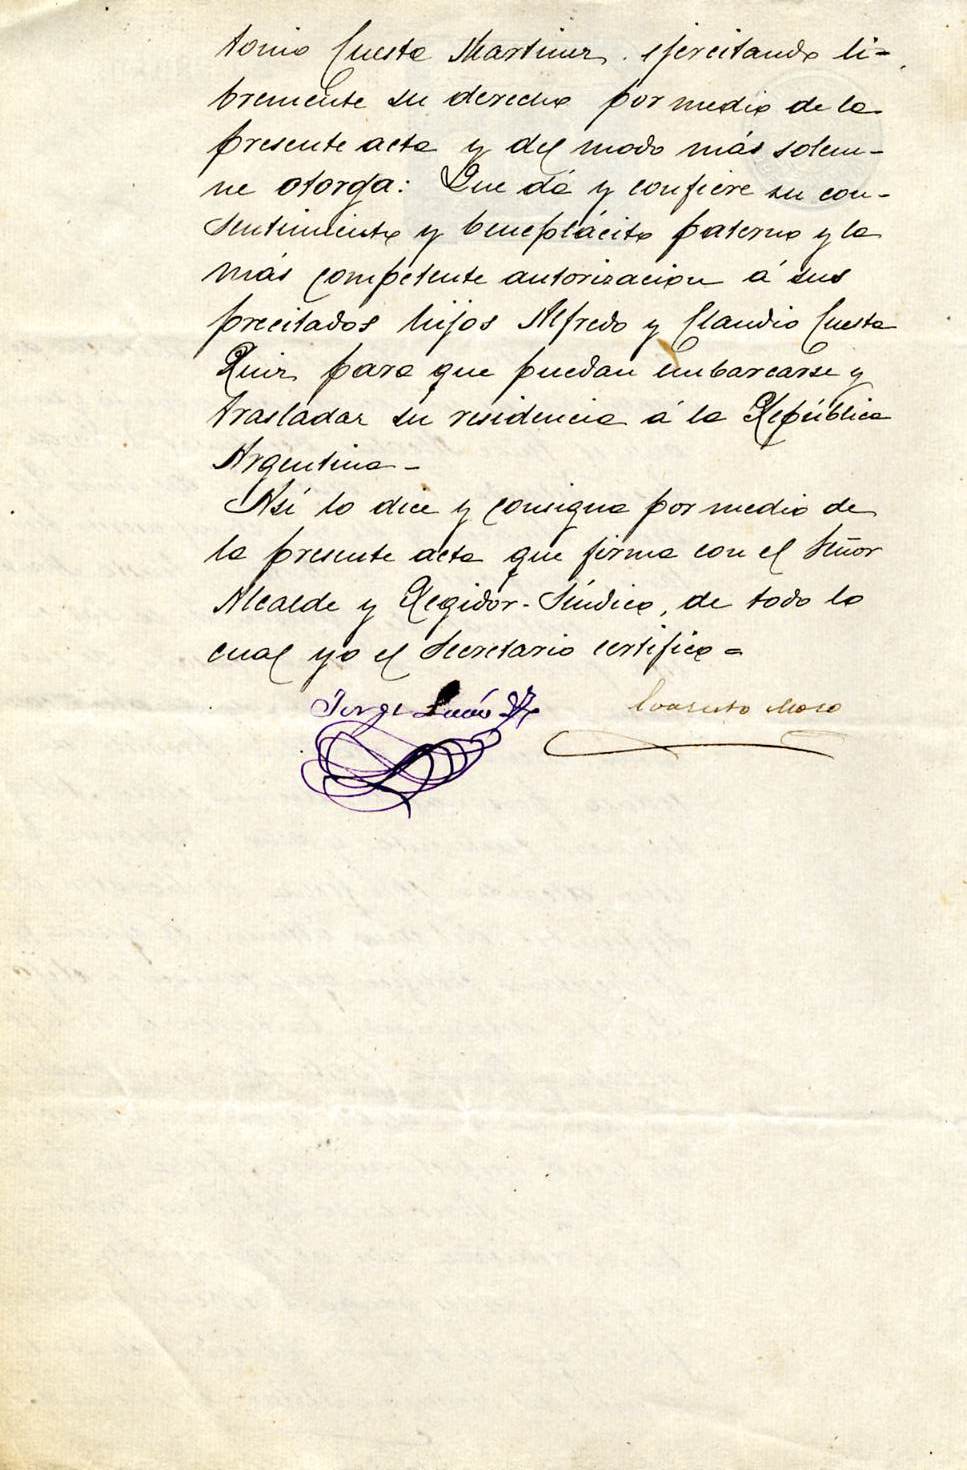 tonio Cuesta Martinez, ejercitando li-
bremente su derecho por medio de la
presente acta y del modo más solem-
ne otorga: Que dá y confiere su con-
sentimiento y beneplácito paterno y la
más competente autorizacion á sus
precitados hijos Alfredo y Claudio Cuesta
Ruiz para que puedan embarcarse y
trasladar su residencia á la República
Argentina-
Así lo dice y consigna por medio de
la presente acta que firma con el Señor
Alcalde y Regidor-Síndico, de todo lo
cual yo el Secretario certifico=
Jorge